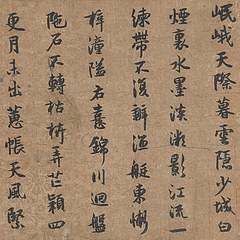 岷峨天際暮雲隱少城白
煙裏水墨淡影江流一
練帶不復辨漁艇東慚
梓潼隘右憙錦川迴盤
陁石不轉枯枿弄芒穎四
更月未出蕙帳天風緊